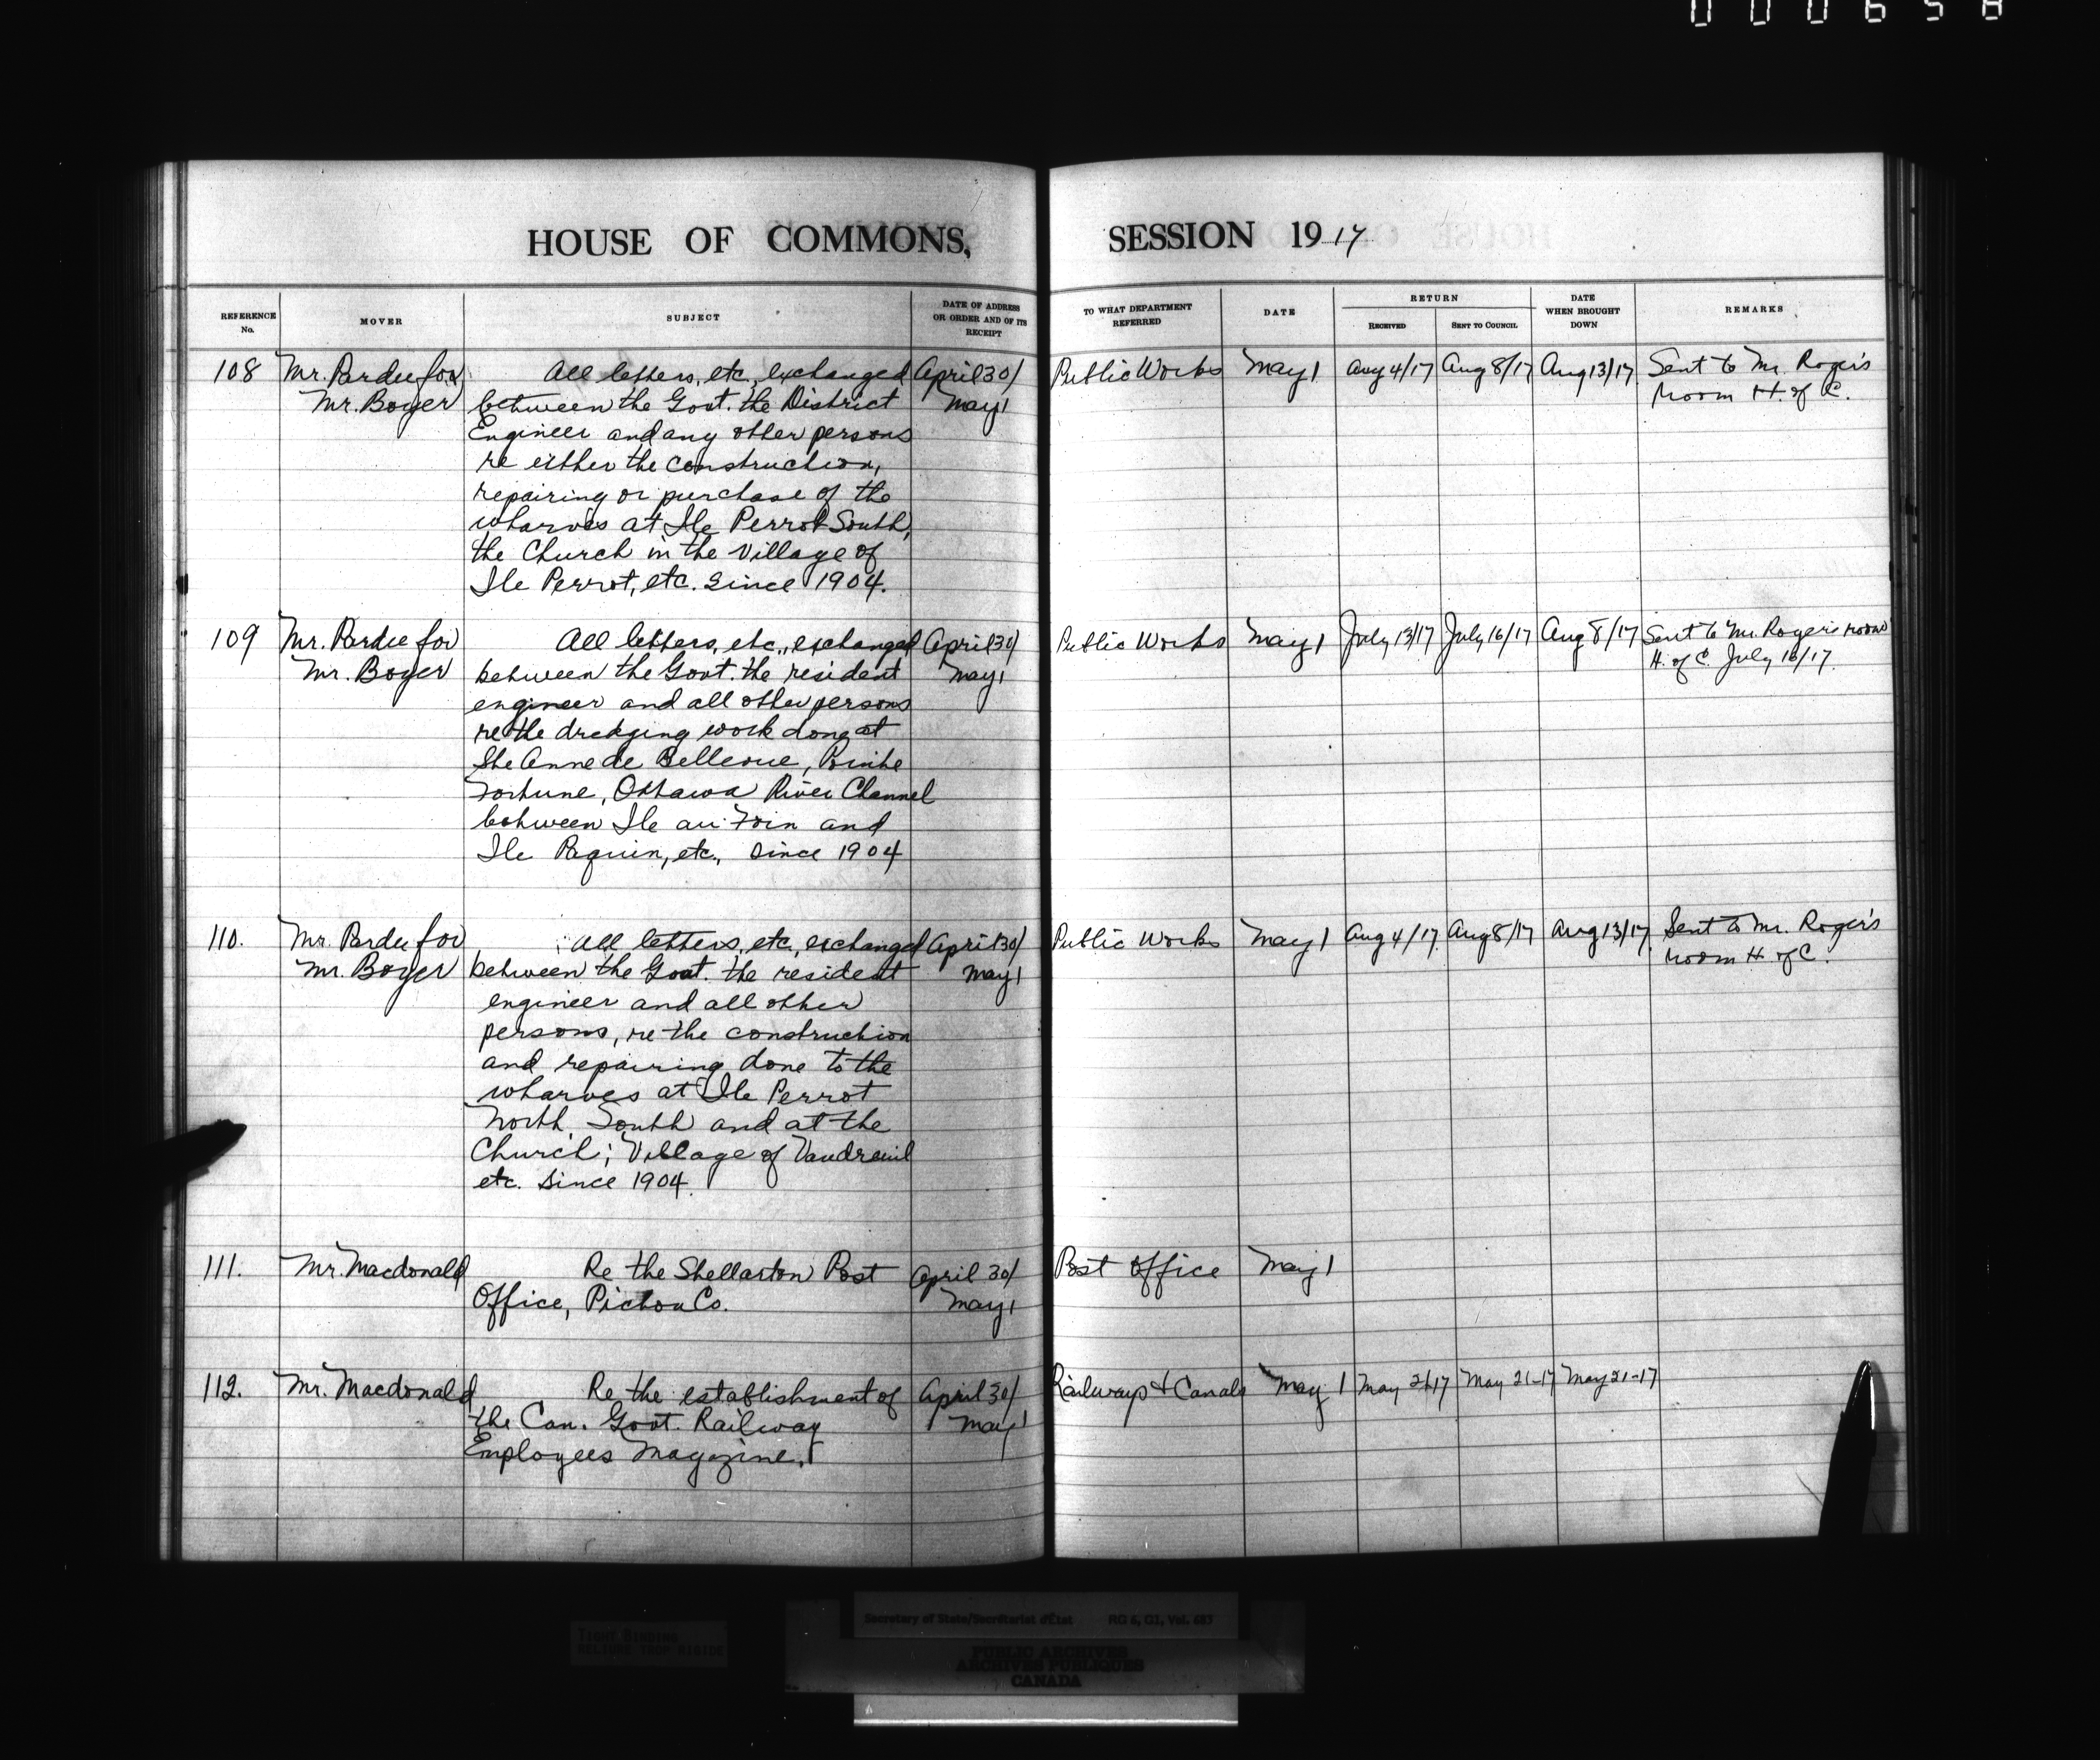 000658
HOUSE OF COMMONS,
SESSION 1917
REFERENCE No.
MOVER
SUBJECT
DATE OF ADDRESS OR ORDER AND OF ITS RECEIPT
TO WHAT DEPARTMENT REFERRED
DATE
RETURN
RECEIVED
SENT TO COUNCIL
DATE WHEN BROUGHT DOWN
REMARKS
108
Mr. Pardee for
Mr. Boyer
All letters, etc., exchanged
between the Govt. the District
Engineer and any other persons
re either the construction,
repairing or purchase of the
wharves at Ile Perrot South,
the Church in the Village of
Ile Perrot, etc. since 1904.
April 30/
May 1
Public Works
May 1
Aug 4/17
Aug 8/17
Aug 13/17
Sent to Mr. Roger's
room H. of C.
109
Mr. Pardee for
Mr. Boyer
All letters, etc., exchanged
between the Govt. the resident
engineer and all other persons
re the dredging work done at
Ste Anne de Bellevue, Pointe
Fortune, Ottawa River Channel
between Ile au Foin and
Ile Paquin, etc., since 1904
April 30/
May 1
Public Works
May 1
July 13/17
July 16/17
Aug 8/17
Sent to Mr. Roger's room
H. of C. July 16/17
110.
Mr. Pardee for
Mr. Boyer
All letters, etc, exchanged
between the Govt. the resident
engineer and all other
persons, re the construction
and repairing done to the
wharves at Ile Perrot
North, South and at the
Church; Village of Vaudreuil
etc. since 1904.
April 30/
May 1
Public Works
May 1
Aug 4/17
Aug 8/17
Aug 13/17
Sent to Mr. Roger's
room H. of C.
111.
Mr. Macdonald
Re the Stellarton Post
Office, Pictou Co.
April 30/
May 1
Post Office
May 1
112.
Mr. Macdonald
Re the establishment of
the Can. Govt. Railway
Employees Magazine.
April 30/
May 1
Railways & Canals
May 1
May 21/17
May 21-17
May 21-17
TIGHT BINDING
RELIURE TROP RIGIDE
Secretary of State/Secrétariat d'État RG 6, G1, Vol. 683
PUBLIC ARCHIVES
ARCHIVES PUBLIQUES
CANADA